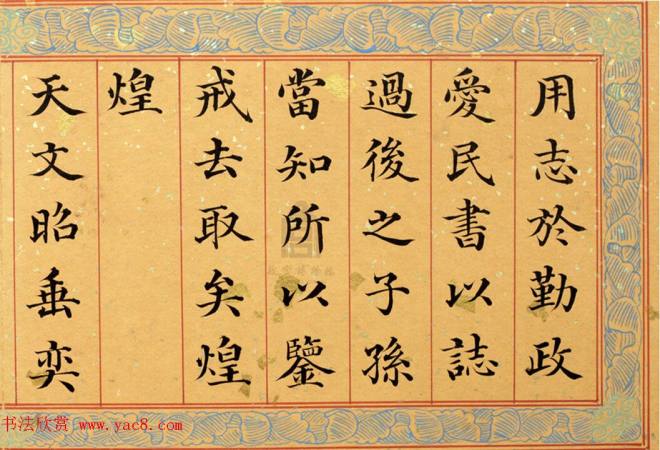 用志於勤政
愛民書以誌
過後之子孫
當知所以鑒
戒去取矣煌
煌
天文昭垂奕
书法欣赏
www.yac8.com